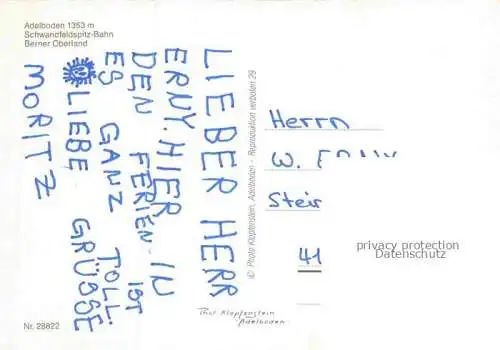 Adelboden 1353 m
Schwandfeldspitz-Bahn
Berner Oberland
LIEBER HERR
ERNY. HIER IN
DEN FERIEN IST
ES GANZ TOLL.
LIEBE GRÜSSE
MORITZ
© Photo Klopfenstein, Adelboden - Reproduktion verboten 29
Herrn
W.
41
privacy protection
Datenschutz
Phot Klopfenstein
Adelboden
Nr. 28822